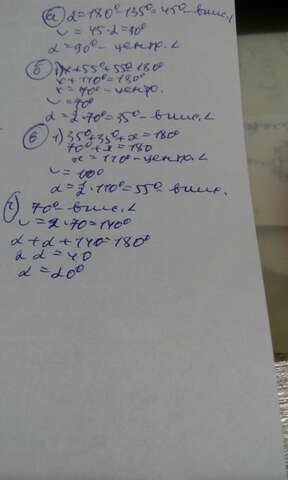 а) α=180°-135°=45°-впис.∠
∪=45·2=90°
α=90°-центр.∠
б) 1) x+55°+55°=180°
x+110°=180°
x=70°-центр.
∪=70°
α=½·70°=35°-впис.∠
в) 1) 35°+35°+x=180°
70°+x=180
x=110°-центр.∠
∪=110°
α=½·110°=55°-впис.
г) 70°-впис.∠
∪=2·70=140°
α+α+140=180°
2α=40
α=20°